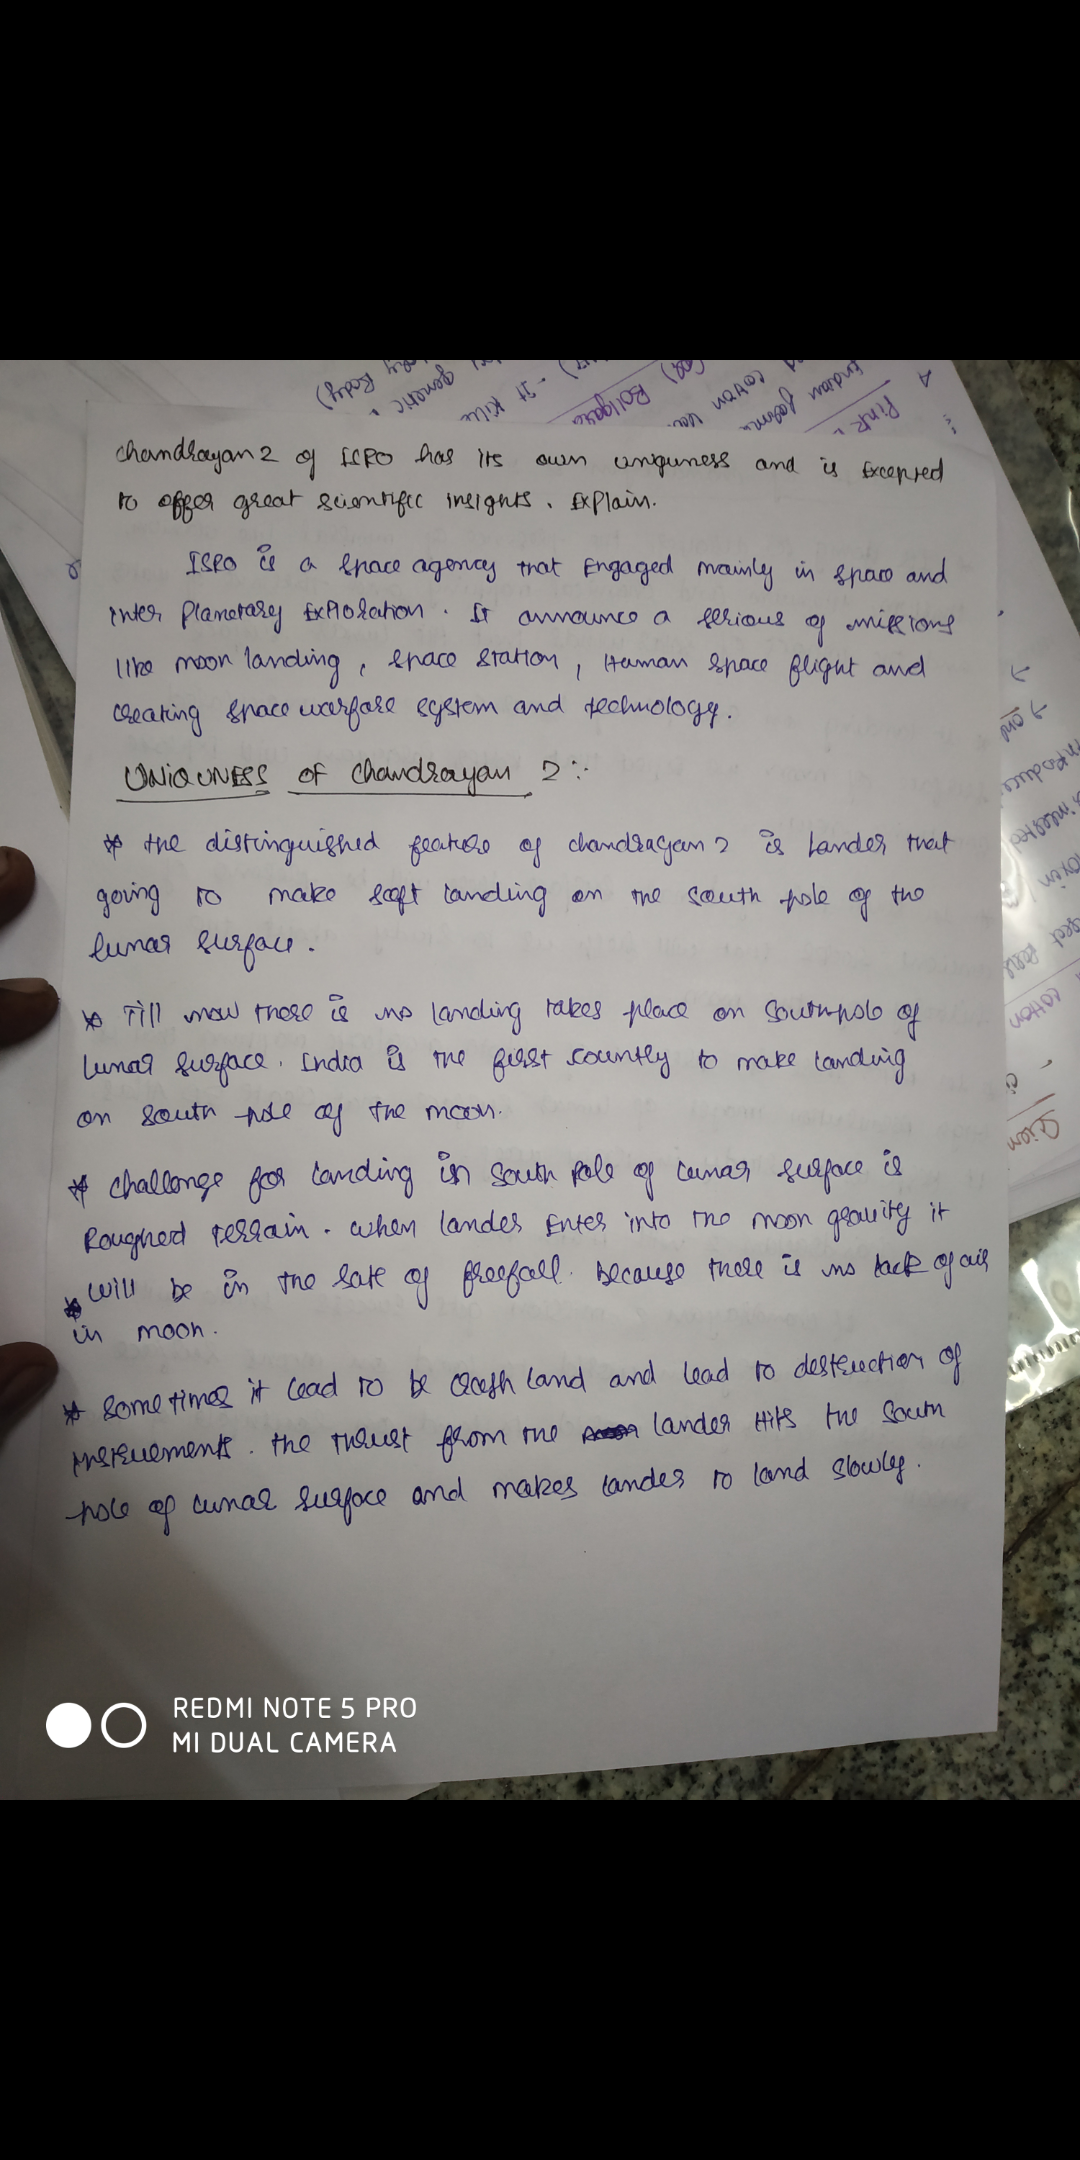 chandrayan 2 of ISRO has its own uniquness and is Excepted
to offer great scientific insights. Explain.
ISRO is a space agency that Engaged mainly in space and
inter planetary Exploration. It announce a serious of missions
like moon landing, space station, Human space flight and
creating space warfare system and technology.
UNIQUNESS of chandrayan 2:-
* the distinguished feature of chandrayan 2 is Lander that
going to make soft landing on the south pole of the
lunar surface.
* Till now there is no landing takes place on southpole of
lunar surface. India is the first country to make landing
on south pole of the moon.
* challenge for landing in south pole of lunar surface is
Roughed terrain. when lander Enter into the moon gravity it
will be in the sate of freefall. Because there is no lack of air
in moon.
* some times it lead to be crash land and lead to destruction of
instruements. the thrust from the lander Hits the south
pole of lunar surface and makes lander to land slowly.
A
Pink
Indian
cotton
Bollga
It kill
genetic
cotton
REDMI NOTE 5 PRO
MI DUAL CAMERA